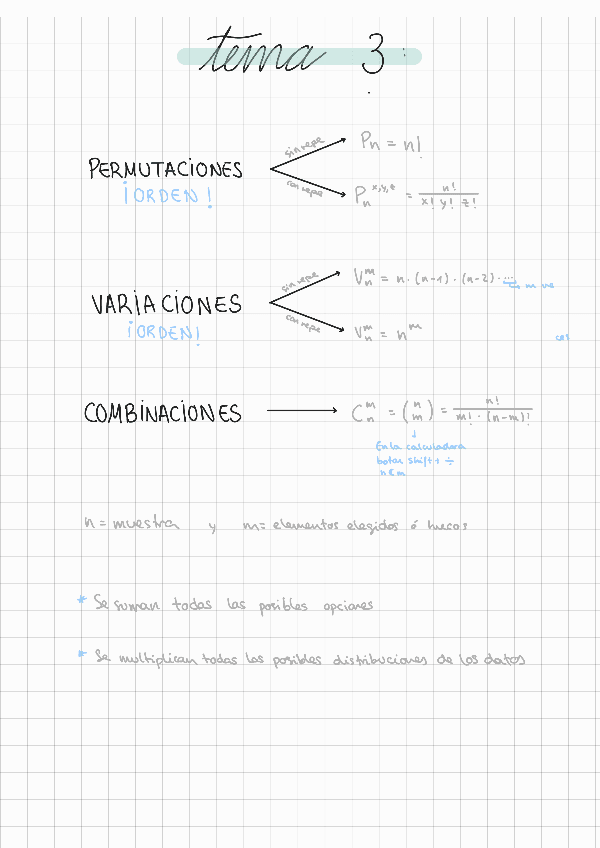 tema 3:
sin repe
Pn = n!
PERMUTACIONES
¡ORDEN!
con repe
Pn^x,y,z = n! / x! y! z!
sin repe
Vn^m = n · (n-1) · (n-2) · ...
m ve
VARIACIONES
¡ORDEN!
con repe
Vn^m = n^m
COMBINACIONES
Cn^m = (n m) = n! / m! · (n-m)!
En la calculadora
botar shift + ÷
n = muestra y m = elementos elegidos ó huecos
* Se suman todas las posibles opciones
* Se multiplican todas las posibles distribuciones de los datos